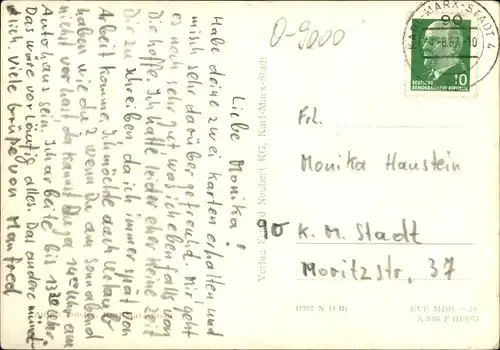 Liebe Monika!
Habe deine zwei Karten erhalten! und
mich sehr darüber gefreuht. Mir geht
es noch sehr gut was ich ebenfalls von
Dir hoffe. Ich hatte leider eher keine Zeit
Dir zu schreiben da ich immer spät von
Arbeit komme. Ich möchte auch Urlaub
haben wie du? Wenn Du am Sonnabend
nicht vor hast da kannst Du ja 14⁰⁰ Uhr am
Autohaus sein. Ich arbeite bis 13³⁰ Uhr.
Das wäre vorläufig alles. Das andere münd-
lich. Viele Grüße von Manfred
O-9000
KARL-MARX-STADT 4
90
10
DEUTSCHE
DEMOKRATISCHE REPUBLIK
Verlag Neubert KG, Karl-Marx-Stadt
Frl.
Monika Haustein
90 K. M. Stadt
Moritzstr. 37
EVP MDN -.24